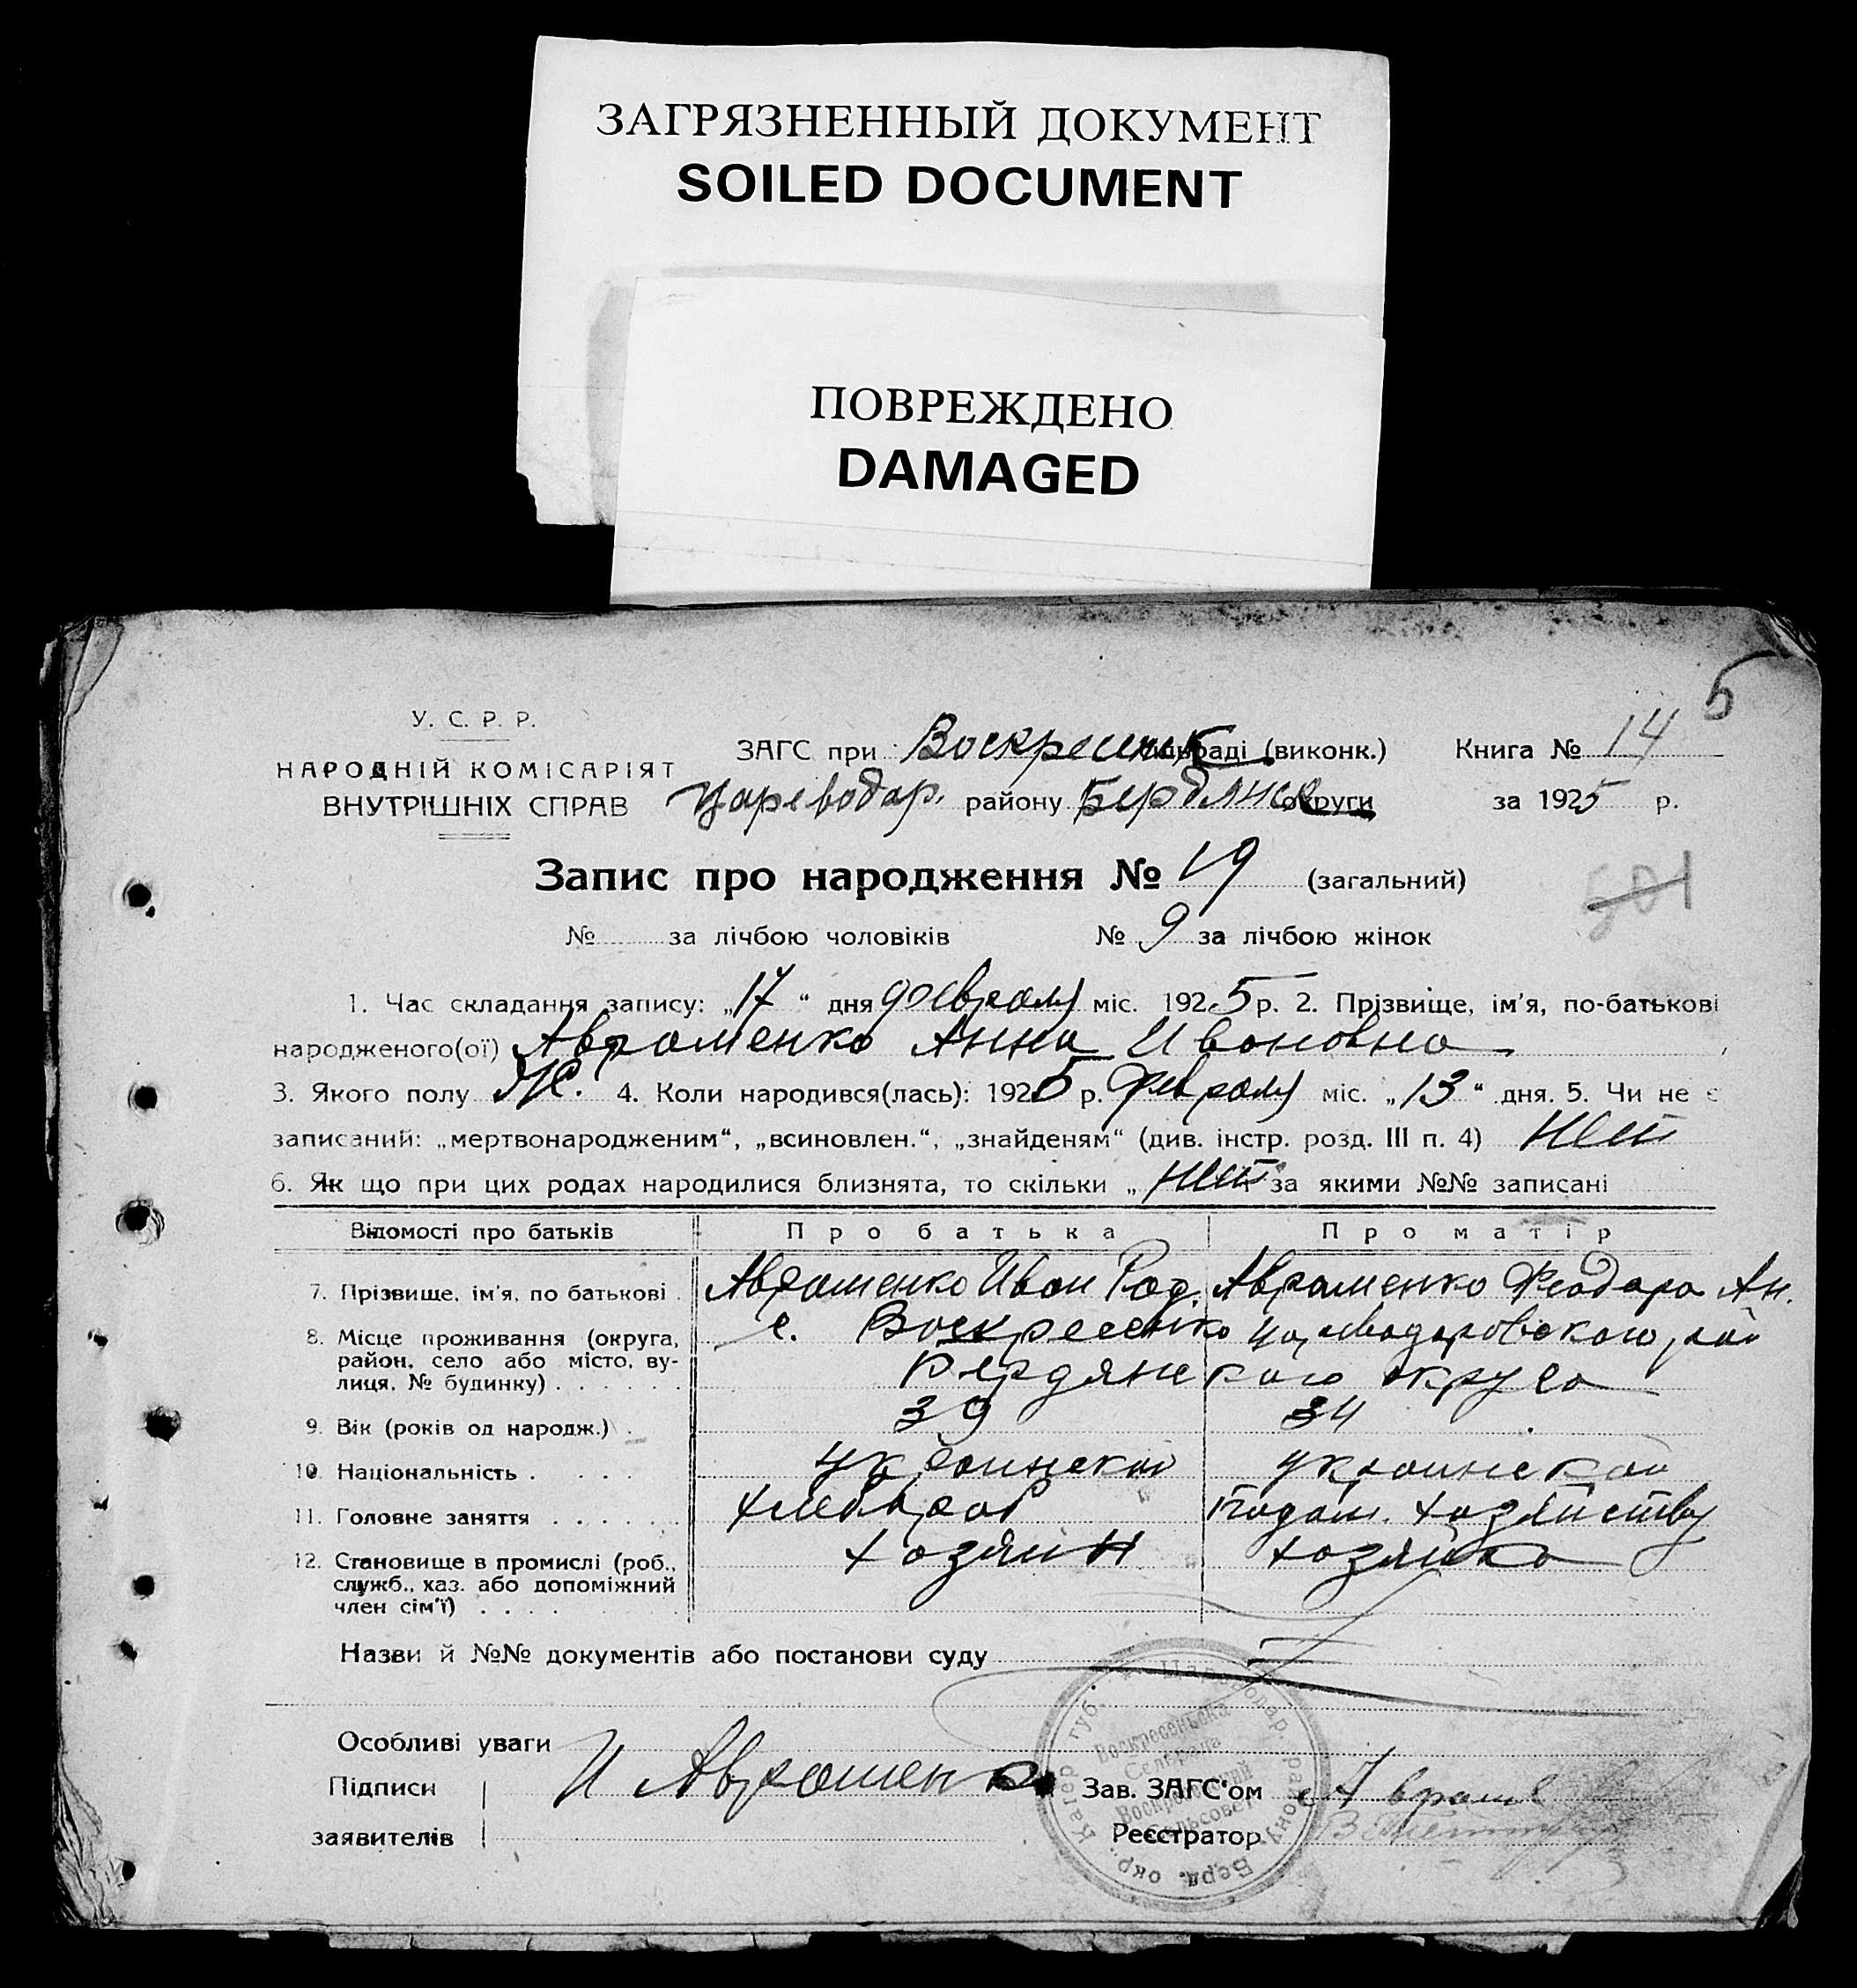 ЗАГРЯЗНЕННЫЙ ДОКУМЕНТ
SOILED DOCUMENT
ПОВРЕЖДЕНО
DAMAGED
5
У. С. Р. Р.
НАРОДНІЙ КОМІСАРІЯТ
ВНУТРІШНІХ СПРАВ
ЗАГС при Воскресенск раді (виконк.) Книга № 14
Цареводар. району Бердянск округи за 1925 р.
Запис про народження № 19 (загальний)
501
№ за лічбою чоловіків № 9 за лічбою жінок
1. Час складання запису: „17“ дня февраля міс. 1925 р. 2. Прізвище, ім'я, по-батькові
народженого(ої) Авраменко Анна Ивановна
3. Якого полу Ж. 4. Коли народився(лась): 1925 р. февраля міс. „13“ дня. 5. Чи не є
записаний: „мертвонародженим“, „всиновлен.“, „знайденям“ (див. інстр. розд. III п. 4) Нет
6. Як що при цих родах народилися близнята, то скільки „ Нет за якими №№ записані
Відомості про батьків Про батька Про матір
7. Прізвище, ім'я, по батькові . Авраменко Иван Род. Авраменко Феодора Ан.
8. Місце проживання (округа, с. Воскресенко Цареводаровского рай
район, село або місто, ву- Бердянского округа
лиця, № будинку) . . . . . .
9. Вік (років од народж.) . 39 34
10. Національність . . . . украинской украинской
11. Головне заняття . . . . . . хлебороб Подом. хозяйству
12. Становище в промислі (роб., хозяин хозяйка
служб., хаз. або допоміжний
член сім'ї) . . . .
Назви й №№ документів або постанови суду
Особливі уваги
Підписи И Авраменко Зав. ЗАГС'ом Аврам
заявителів Реєстратор
Цареводар. району Берд. окр. Катер губ.
Воскресенська
Селрада
Воскресенский
Сельсовет